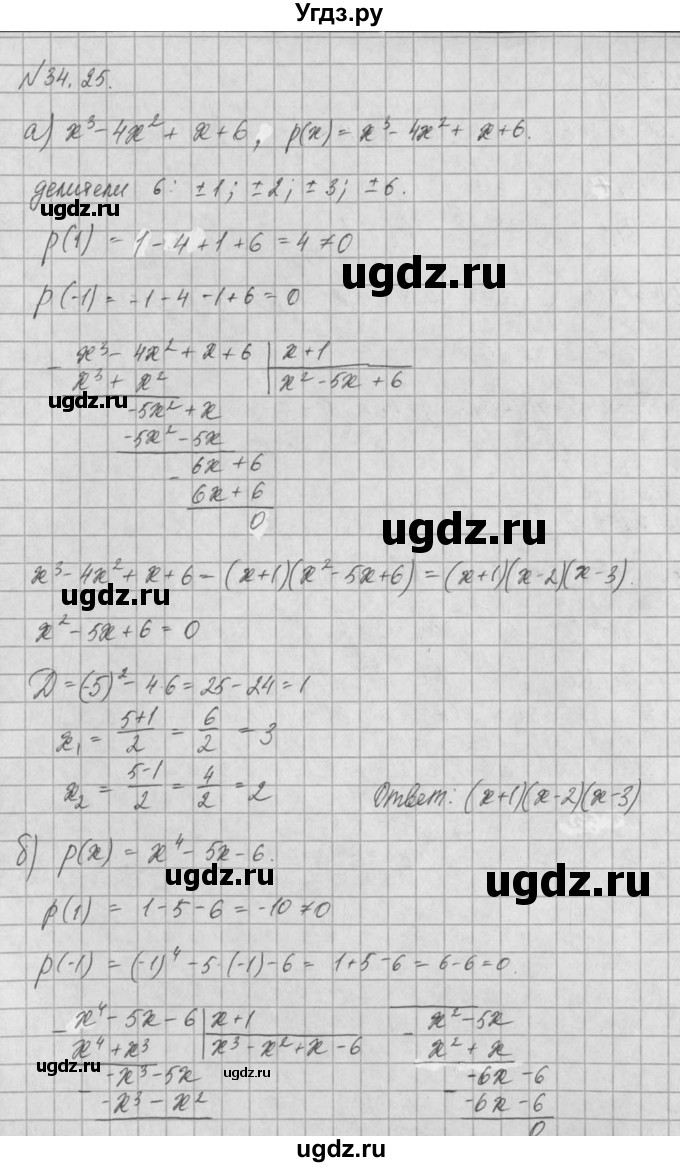 Угдз.ру
№34.25.
а) x³-4x²+x+6, p(x)=x³-4x²+x+6.
делители 6: ±1; ±2; ±3; ±6.
ugdz.ru
p(1) = 1-4+1+6=4≠0
ugdz.ru
p(-1)=-1-4-1+6=0
- x³-4x²+x+6 | x+1
x³+x² | x²-5x+6
ugdz.ru
-5x²+x
-5x²-5x
- 6x+6
6x+6
0
ugdz.ru
x³-4x²+x+6=(x+1)(x²-5x+6)=(x+1)(x-2)(x-3).
ugdz.ru
x²-5x+6=0
D=(-5)²-4·6=25-24=1
x₁ = (5+1)/2 = 6/2 = 3
x₂ = (5-1)/2 = 4/2 = 2
Ответ: (x+1)(x-2)(x-3)
б) p(x)=x⁴-5x-6.
ugdz.ru
ugdz.ru
p(1) = 1-5-6=-10≠0
p(-1) = (-1)⁴-5·(-1)-6= 1+5-6=6-6=0.
- x⁴-5x-6 | x+1
x⁴+x³ | x³-x²+x-6
-x³-5x
-x³-x²
- x²-5x
x²+x
- -6x-6
-6x-6
0
ugdz.ru
ugdz.ru
ugdz.ru